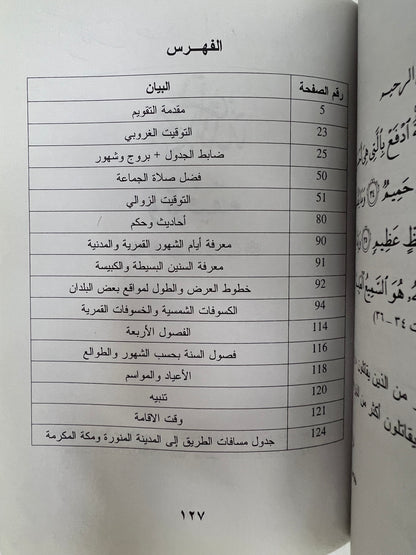 الفهـــرس
رقم الصفحة البيان
5 مقدمة التقويم
23 التوقيت الغروبي
25 ضابط الجدول + بروج وشهور
50 فضل صلاة الجماعة
51 التوقيت الزوالي
80 أحاديث وحكم
90 معرفة أيام الشهور القمرية والمدنية
91 معرفة السنين البسيطة والكبيسة
92 خطوط العرض والطول لمواقع بعض البلدان
94 الكسوفات الشمسية والخسوفات القمرية
114 الفصول الأربعة
116 فصول السنة بحسب الشهور والطوالع
118 الأعياد والمواسم
120 تنبيه
121 وقت الاقامة
124 جدول مسافات الطريق إلى المدينة المنورة ومكة المكرمة
١٢٧
الرحيم
ادْفَعْ بِالَّتِي هِيَ
حَمِيمٌ ٣٤
عَظِيمٍ ٣٥
هُوَ السَّمِيعُ
٣٤ - ٣٦
من الذين يقاتلون
يقاتلون أكثر من